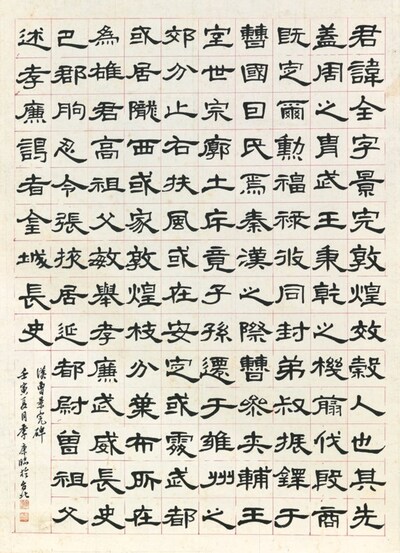 君諱全字景完敦煌效穀人也其先
蓋周之胄武王秉乾之機翦伐殷商
既定爾勳福祿攸同封弟叔振鐸于
曹國因氏焉秦漢之際曹參夾輔王
室世宗廓土斥竟子孫遷于雍州之
郊分止右扶風或在安定或處武都
或居隴西或家敦煌枝分葉布所在
為雄君高祖父敏舉孝廉武威長史
巴郡朐忍令張掖居延都尉曾祖父
述孝廉謁者金城長史
漢曹景完碑
壬寅夏月李康臨於台北